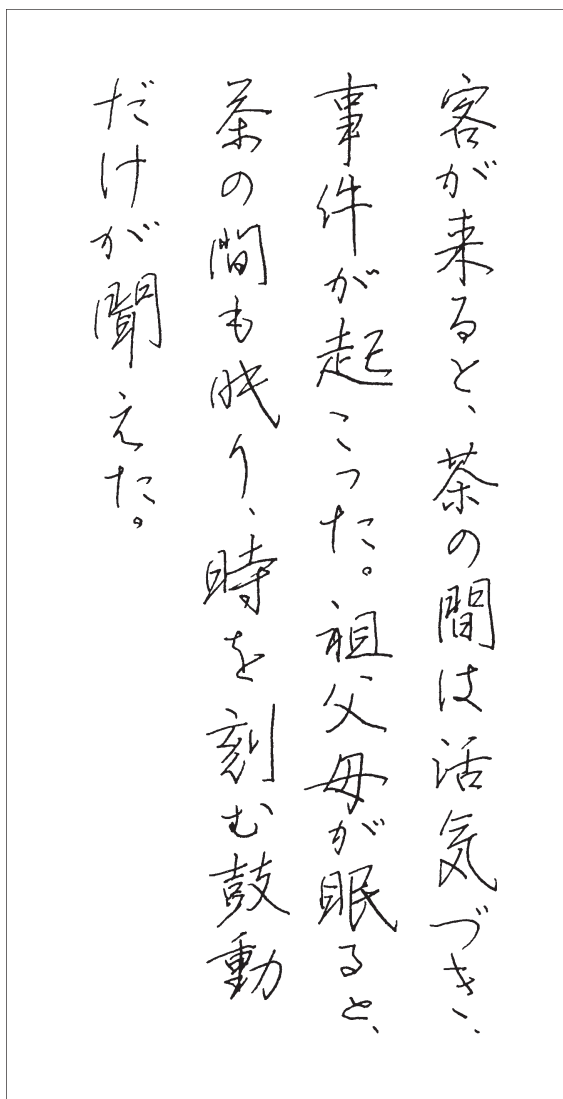 客が来ると、茶の間は活気づき、
事件が起こった。祖父母が眠ると、
茶の間も眠り、時を刻む鼓動
だけが聞えた。